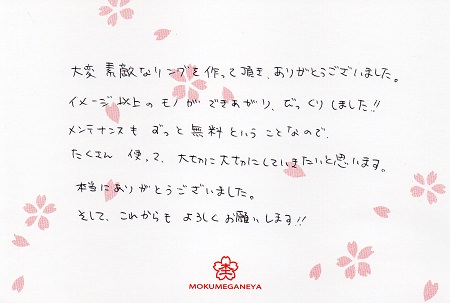 大変 素敵なリングを作って頂き、ありがとうございました。
イメージ以上のモノができあがり、びっくりしました!!
メンテナンスも ずっと無料ということなので、
たくさん 使って、大切に大切にしていきたいと思います。
本当にありがとうございました。
そして、これからも よろしくお願いします!!
MOKUMEGANEYA